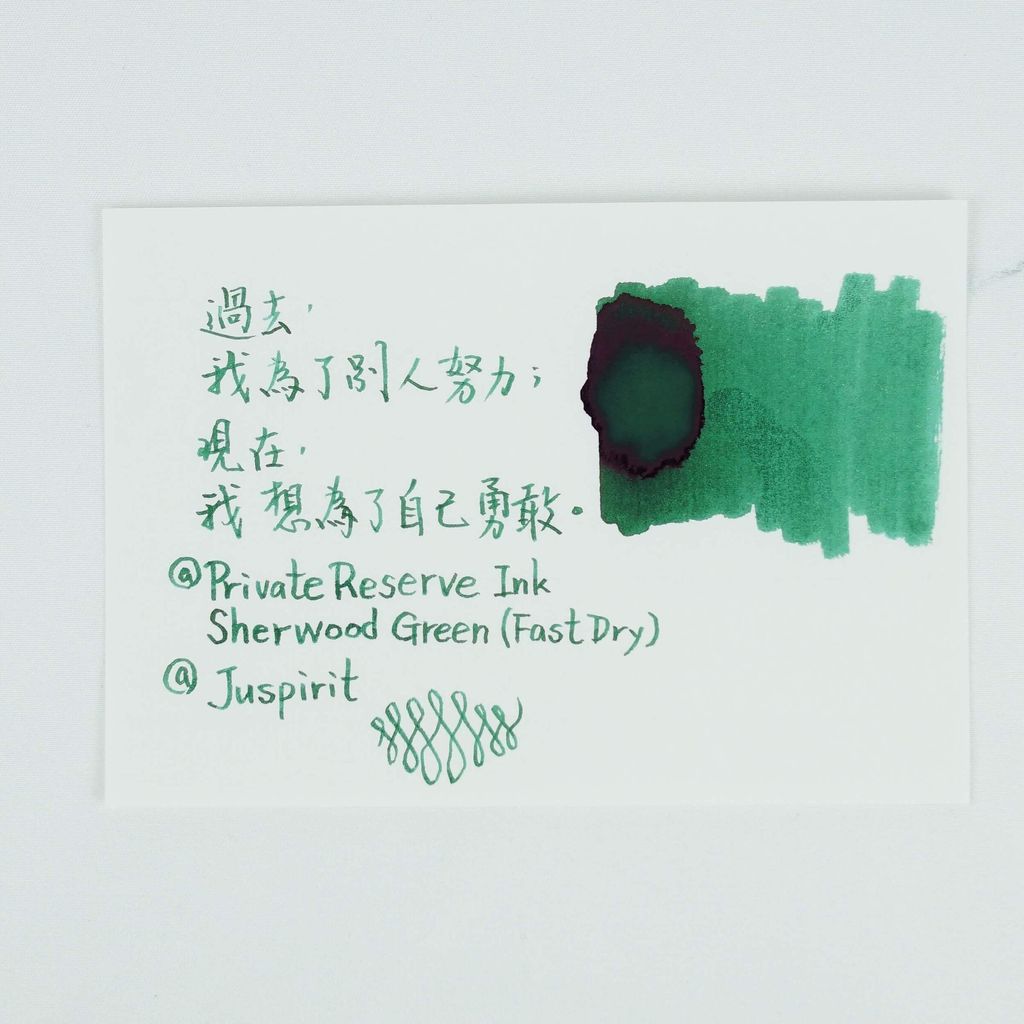 過去，
我為了別人努力；
現在，
我想為了自己勇敢。
@Private Reserve Ink
Sherwood Green (Fast Dry)
@ Juspirit